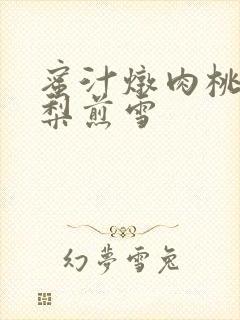 蜜汁燉肉桃
梨煎雪
幻夢雪兔